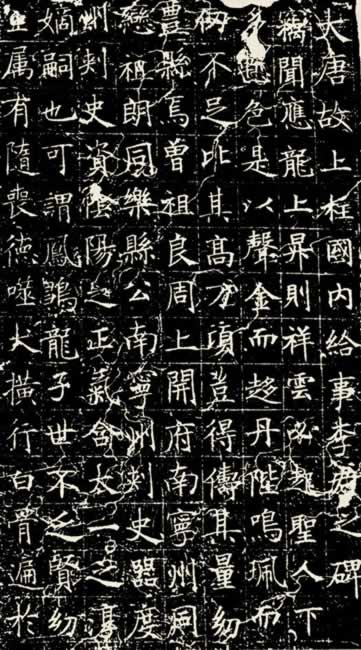 大唐故上柱國内給事李君之碑
竊聞應龍上昇則祥雲必起聖人下
色是以聲金而趍丹陛鳴珮而
不足比其高才項豈得儔其量幼
豊縣焉曾祖良周上開府南寧州同
祖朗風樂縣公南寧州刾史器度
州刾史資陰陽之正氣含太一之淳
嫡嗣也可謂鳳鶵龍子世不乏賢幼
属有隨喪德噬犬横行白骨遍於